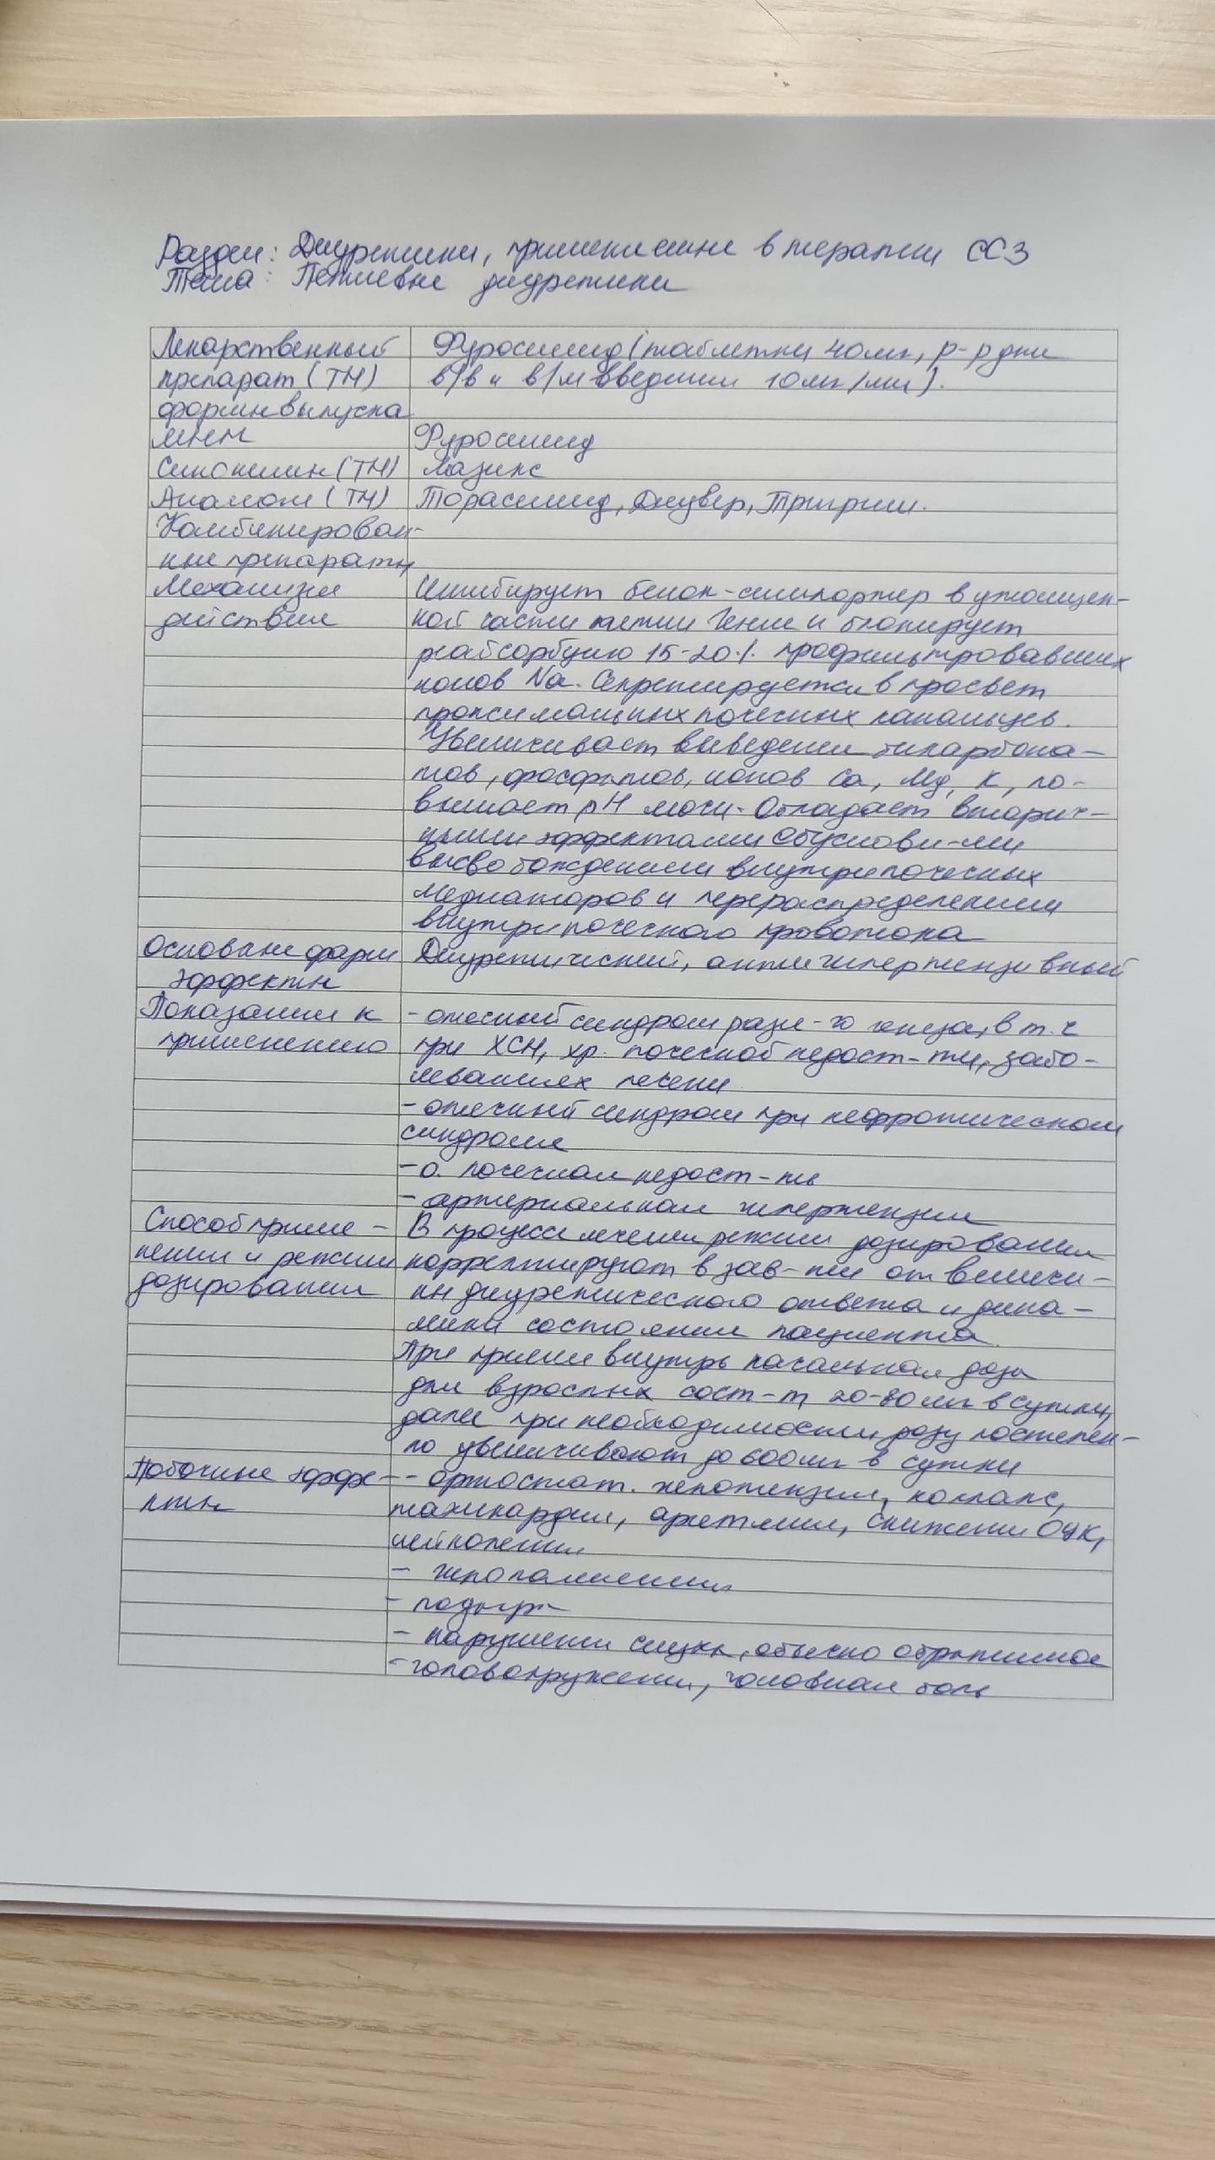 Раздел: Диуретики, применяемые в терапии ССЗ
Тема: Петлевые диуретики
Лекарственный Фуросемид (таблетки 40мг, р-р для
препарат (ТН) в/в и в/м введения 10мг/мл).
формы выпуска
МНН Фуросемид
Синонимы (ТН) Лазикс
Аналоги (ТН) Торасемид, Диувер, Тригрим.
Комбинирован-
ные препараты
Механизм Ингибирует белок-симпортер в утолщен-
действия ной части петли Генле и блокирует
реабсорбцию 15-20% профильтровавших
ионов Na. Секретируется в просвет
проксимальных почечных канальцев.
Увеличивает выведение бикарбона-
тов, фосфатов, ионов Ca, Mg, K, по-
вышает pH мочи. Обладает вторич-
ными эффектами обуслови-ми
высвобождением внутрипочечных
медиаторов и перераспределением
внутрипочечного кровотока
Основные фарм Диуретический, антигипертензивный
эффекты
Показания к - отечный синдром разл-го генеза, в т.ч
применению при ХСН, хр. почечной недост-ти, забо-
леваниях печени
- отечный синдром при нефротическом
синдроме
- о. почечная недост-ть
- артериальная гипертензия
Способ приме- В процессе лечения режим дозирования
нения и режим корректируют в зав-ти от величи-
дозирования ны диуретического ответа и дина-
мики состояния пациента.
При приеме внутрь начальная доза
для взрослых сост-т 20-80мг в сутки,
далее при необходимости дозу постепен-
но увеличивают до 600мг в сутки
Побочные эффе- - ортостат. гипотензия, коллапс,
кты тахикардия, аритмия, снижение ОЦК,
лейкопения
- гипокалиемия
- подагра
- нарушения слуха, обычно обратимое
- головокружение, головная боль